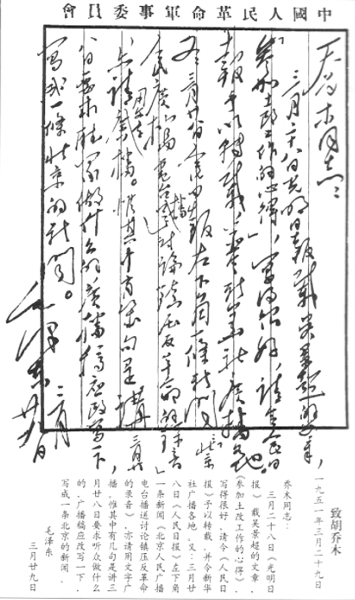 中國人民革命軍事委員會
乔木同志：
三月二十八日光明日报载吴景超的文章，
《参加土改工作的心得》，写得很好，请令人民日
报予以转载，並令新华社广播各地。
又三月廿八日人民日报左下角一条新闻《北京
人民广播电台播送讨论镇压反革命的录音》
亦请用文字广播。惟其中有几句是讲三月廿
八日要求听众做什么的，广播稿应改写一下，
写成一条北京的新闻。
毛泽东
三月廿九日
致胡乔木
一九五一年三月二十九日
乔木同志：
三月二十八日《光明日
报》载吴景超的文章，
《参加土改工作的心得》，
写得很好，请令《人民日
报》予以转载，并令新华
社广播各地。又：三月廿
八日《人民日报》左下角
一条新闻《北京人民广播
电台播送讨论镇压反革命
的录音》亦请用文字广
播，惟其中有几句是讲三
月廿八日要求听众做什么
的，广播稿应改写一下，
写成一条北京的新闻。
毛泽东
三月廿九日